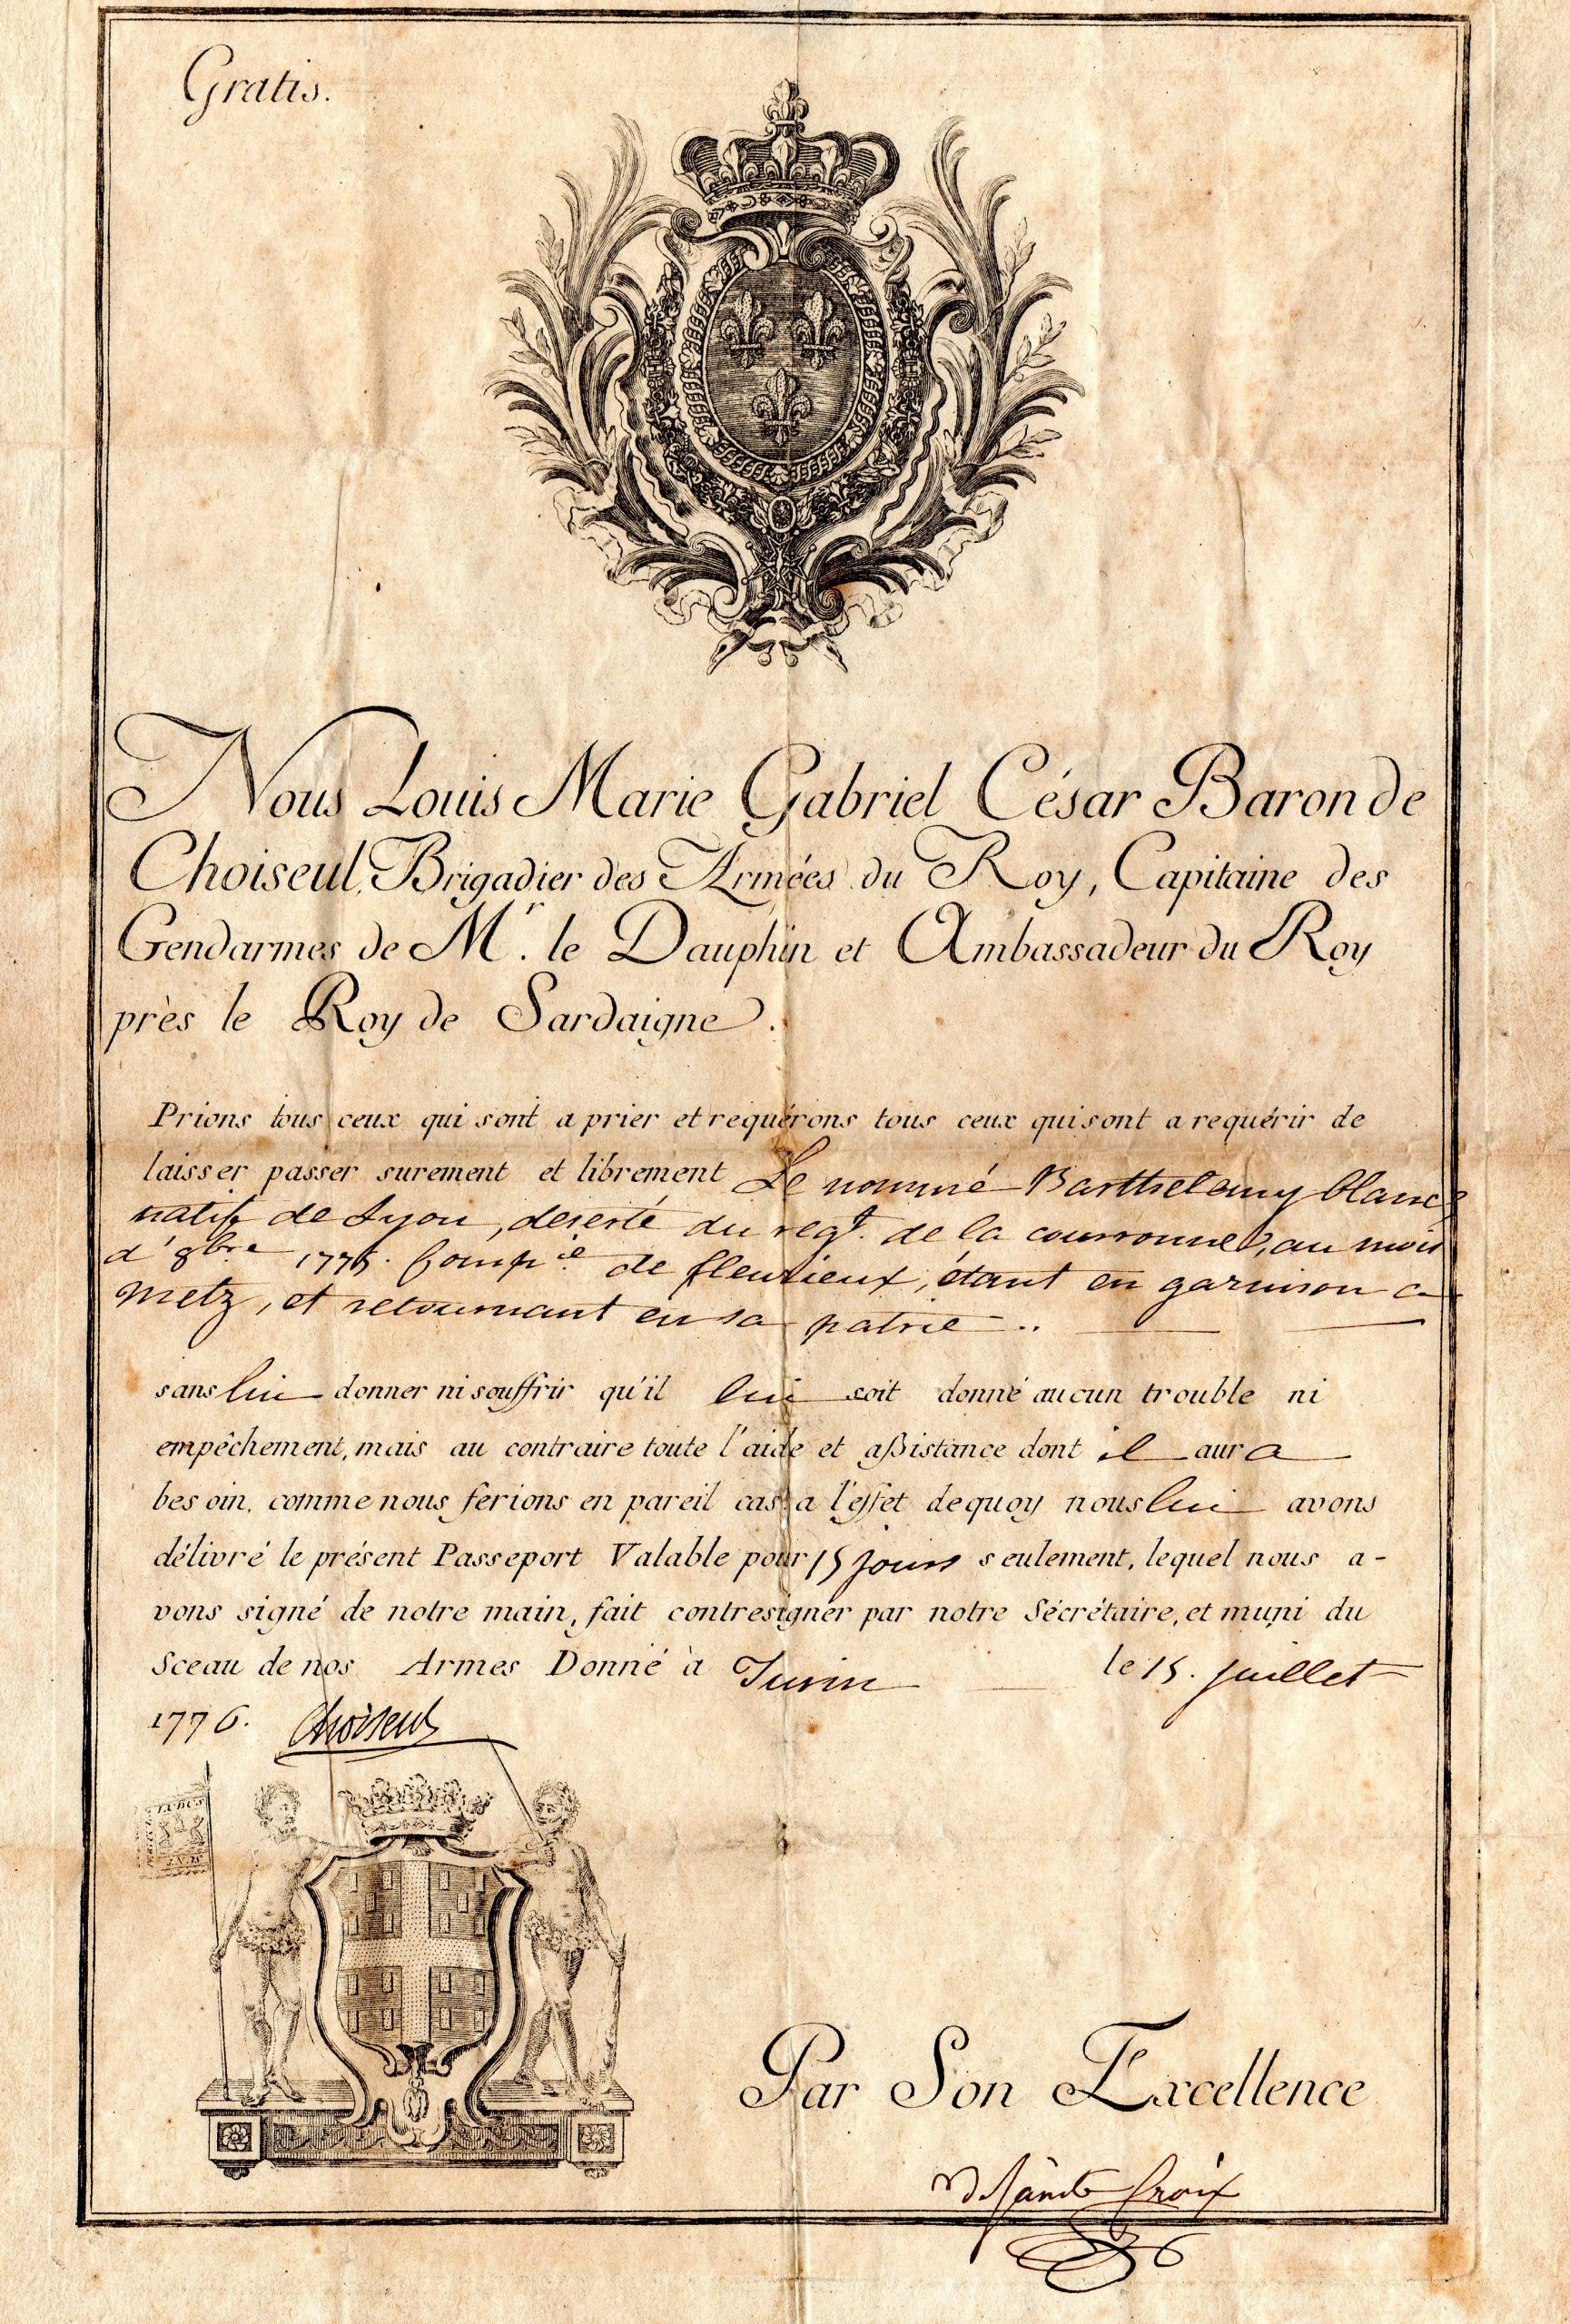 Gratis.
Nous Louis Marie Gabriel César Baron de
Choiseul, Brigadier des Armées du Roy, Capitaine des
Gendarmes de Mr. le Dauphin et Ambassadeur du Roy
près le Roy de Sardaigne.
Prions tous ceux qui sont a prier et requérons tous ceux qui sont a requérir de
laisser passer surement et librement Le nommé Barthelemy blanc
natif de Lyon, deserté du regt. de la couronne, au mois
d'8bre 1775. Compie. de fleurieux, étant en garnison a
Metz, et retournant en sa patrie..
sans lui donner ni souffrir qu'il lui soit donné aucun trouble ni
empêchement, mais au contraire toute l'aide et aßistance dont il aura
besoin, comme nous ferions en pareil cas a l'effet de quoy nous lui avons
délivré le présent Passeport Valable pour 15 jours seulement, lequel nous a-
vons signé de notre main, fait contresigner par notre Sécrétaire, et muni du
Sceau de nos Armes Donné à Turin le 15. juillet
1776. Choiseul
Par Son Excellence
de Sainte Croix